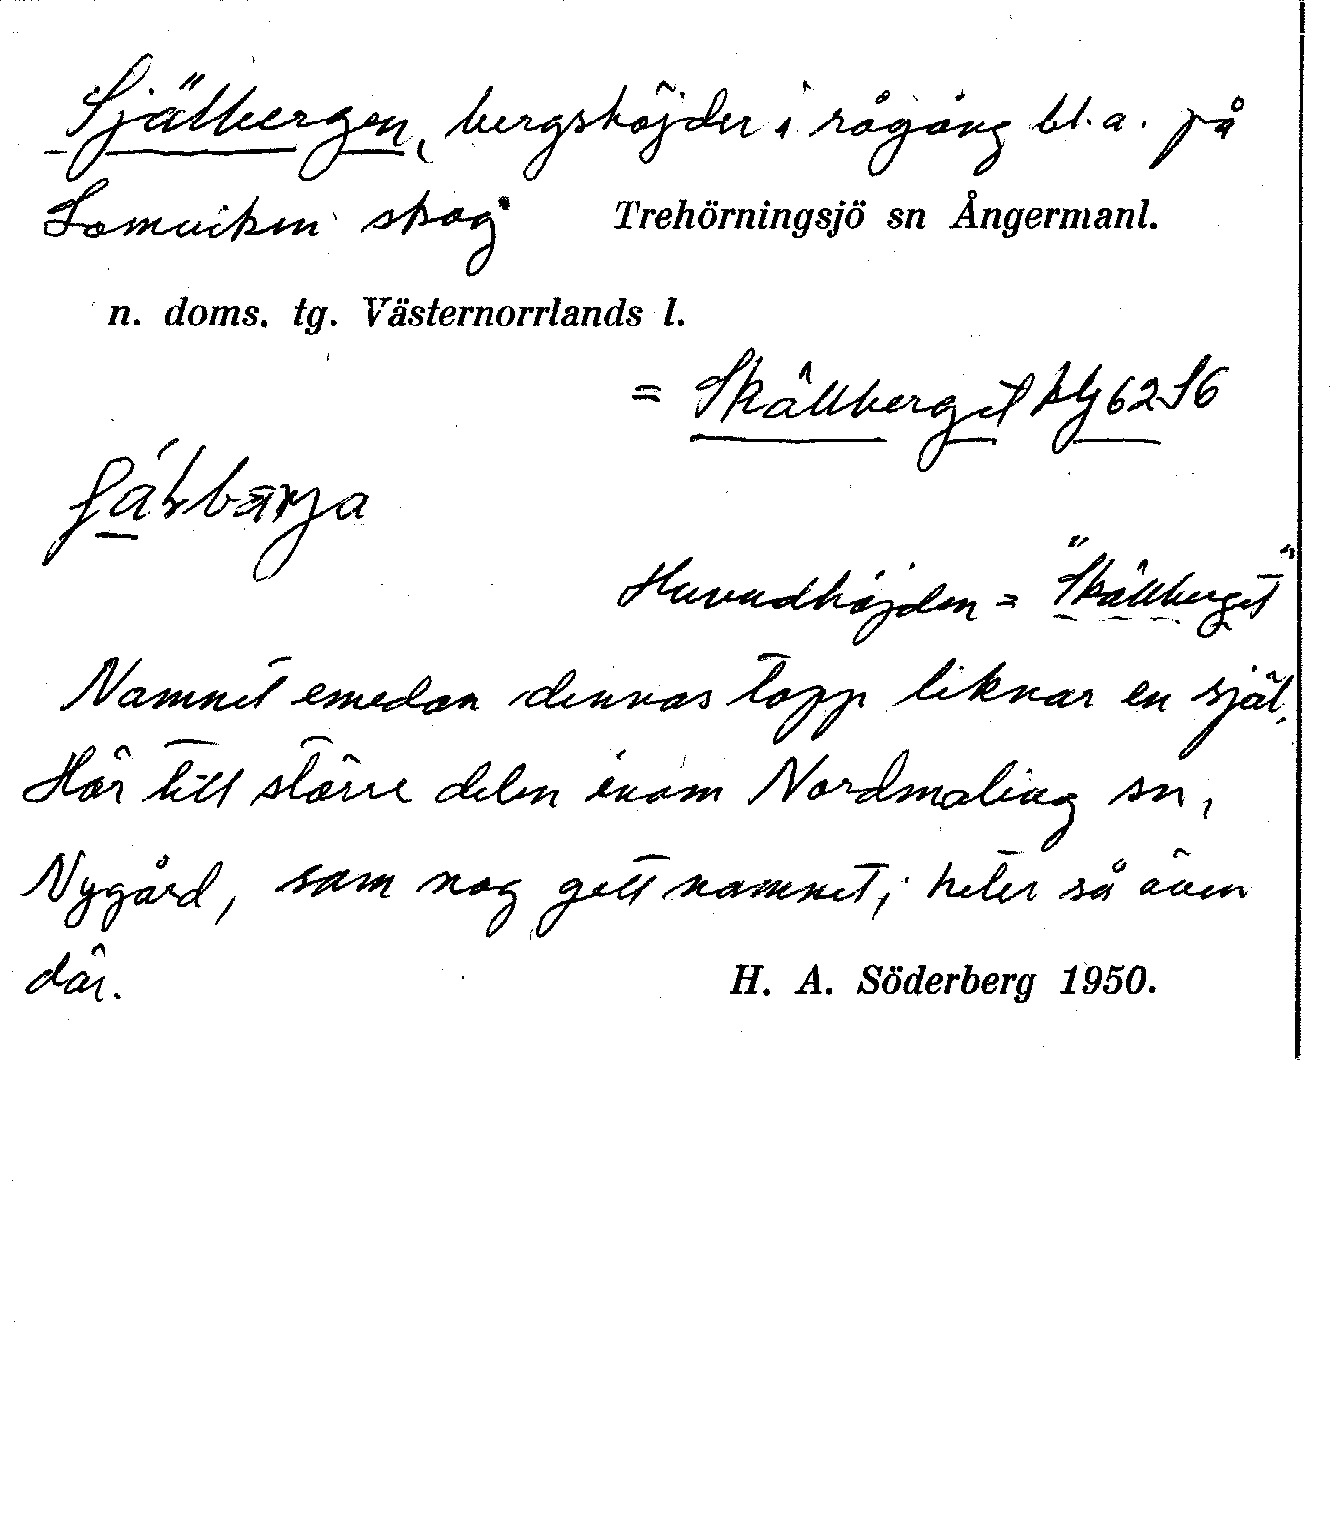 Själbergen, bergshöjder i rågång bl.a. på
Lomviken skog Trehörningsjö sn Ångermanl.
n. doms. tg. Västernorrlands l.
= Skällberget blg 62 S6
Huvudhöjden = "Skällberget"
Namnet emedan dennas topp liknar en själ.
Här till större delen inom Nordmaling sn,
Nygård, som nog gett namnet, heter så även
där. H. A. Söderberg 1950.